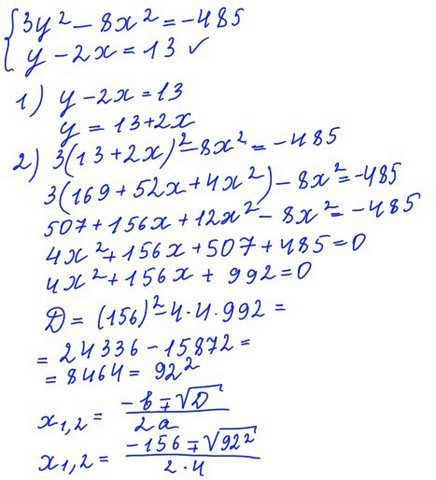 {3y² - 8x² = -485
y - 2x = 13 ✓
1) y - 2x = 13
y = 13 + 2x
2) 3(13 + 2x)² - 8x² = -485
3(169 + 52x + 4x²) - 8x² = -485
507 + 156x + 12x² - 8x² = -485
4x² + 156x + 507 + 485 = 0
4x² + 156x + 992 = 0
D = (156)² - 4·4·992 =
= 24336 - 15872 =
= 8464 = 92²
x₁,₂ = (-b ∓ √D) / 2a
x₁,₂ = (-156 ∓ √92²) / 2·4